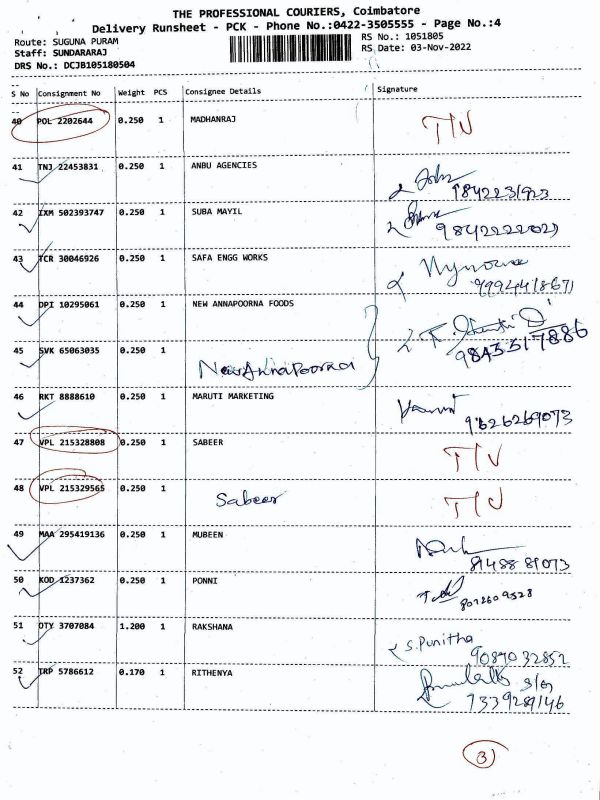 THE PROFESSIONAL COURIERS, Coimbatore
Delivery Runsheet - PCK - Phone No.:0422-3505555 - Page No.:4
Route: SUGUNA PURAM RS No.: 1051805
Staff: SUNDARARAJ RS Date: 03-Nov-2022
DRS No.: DCJB105180504
S No Consignment No Weight PCS Consignee Details Signature
40 POL 2202644 0.250 1 MADHANRAJ T/N
41 TNJ 22453831 0.250 1 ANBU AGENCIES
9842231923
42 IXM 502393747 0.250 1 SUBA MAYIL
9842222027
43 TCR 30046926 0.250 1 SAFA ENGG WORKS
9994418671
44 DPI 10295061 0.250 1 NEW ANNAPOORNA FOODS
9843517886
45 SVK 65063035 0.250 1 New Annapoorna
46 RKT 8888610 0.250 1 MARUTI MARKETING
9626269073
47 VPL 215328808 0.250 1 SABEER T/N
48 VPL 215329565 0.250 1 Sabeer T/N
49 MAA 295419136 0.250 1 MUBEEN
8148881073
50 KOD 1237362 0.250 1 PONNI
8072609528
51 OTY 3707084 1.200 1 RAKSHANA S. Punitha
9087032852
52 TRP 5786612 0.170 1 RITHENYA
7339289146
3